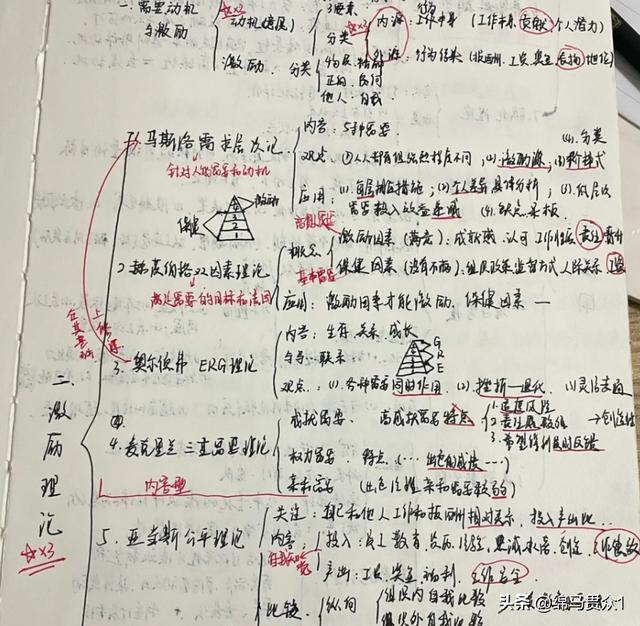 一. 需要动机与激励
动机(意愿)
3要素
☆×3
分类
内源:工作本身(工作本身,贡献,个人潜力)
外源:行为结果(报酬、工资、奖金
地位)
激励. 分类
物质、精神
正向、反向
他人:自我
二、激励理论
☆×3
1、马斯洛需求层次论
针对人的需要和动机
内容:5种需要.
观点 ①人人都有但组织起程度不同;(2).激励源;(3)
(4).分类
应用:(1).每层
措施;(2)个人差异具体分析;(3).低层次
需要投入效益递减 (4).
激励
保健
2.赫兹伯格双因素理论
满足需要的目标和诱因
概念
高级需要
激励因素(满意):成就感.认可 工作性质 责任 晋升
基本需要
保健因素(没有不满):组织政策 监督方式 人际关系 工资
应用:激励因素才能激励. 保健因素 —
在其基础上修改
3.奥尔德弗 ERG理论
内容:生存.关系.成长
与马.联系
G
R
E
观点.:(1).各种需要同时作用 (2).挫折—退化. (3)灵活变通
④
4.麦克里兰 三重需要理论
成就需要.高成就需要特点
1.适度风险
2.责任感较强
3.希望得到及时反馈
→创造性
权力需要 特点.(… 出色的成绩 …)
亲和需要 (出色经理亲和需要较弱)
1 内容型
5. 亚当斯公平理论
关注:自己和他人工作和报酬相对关系,投入产出比..
内容:投入:员工教育、资历、经验、忠诚承诺、创造、工作绩效
自我知觉
产出:工资、奖金、福利、工作安全
比较
纵向
组织内自我比较
组织外自我比较
头条@绿马贯众1